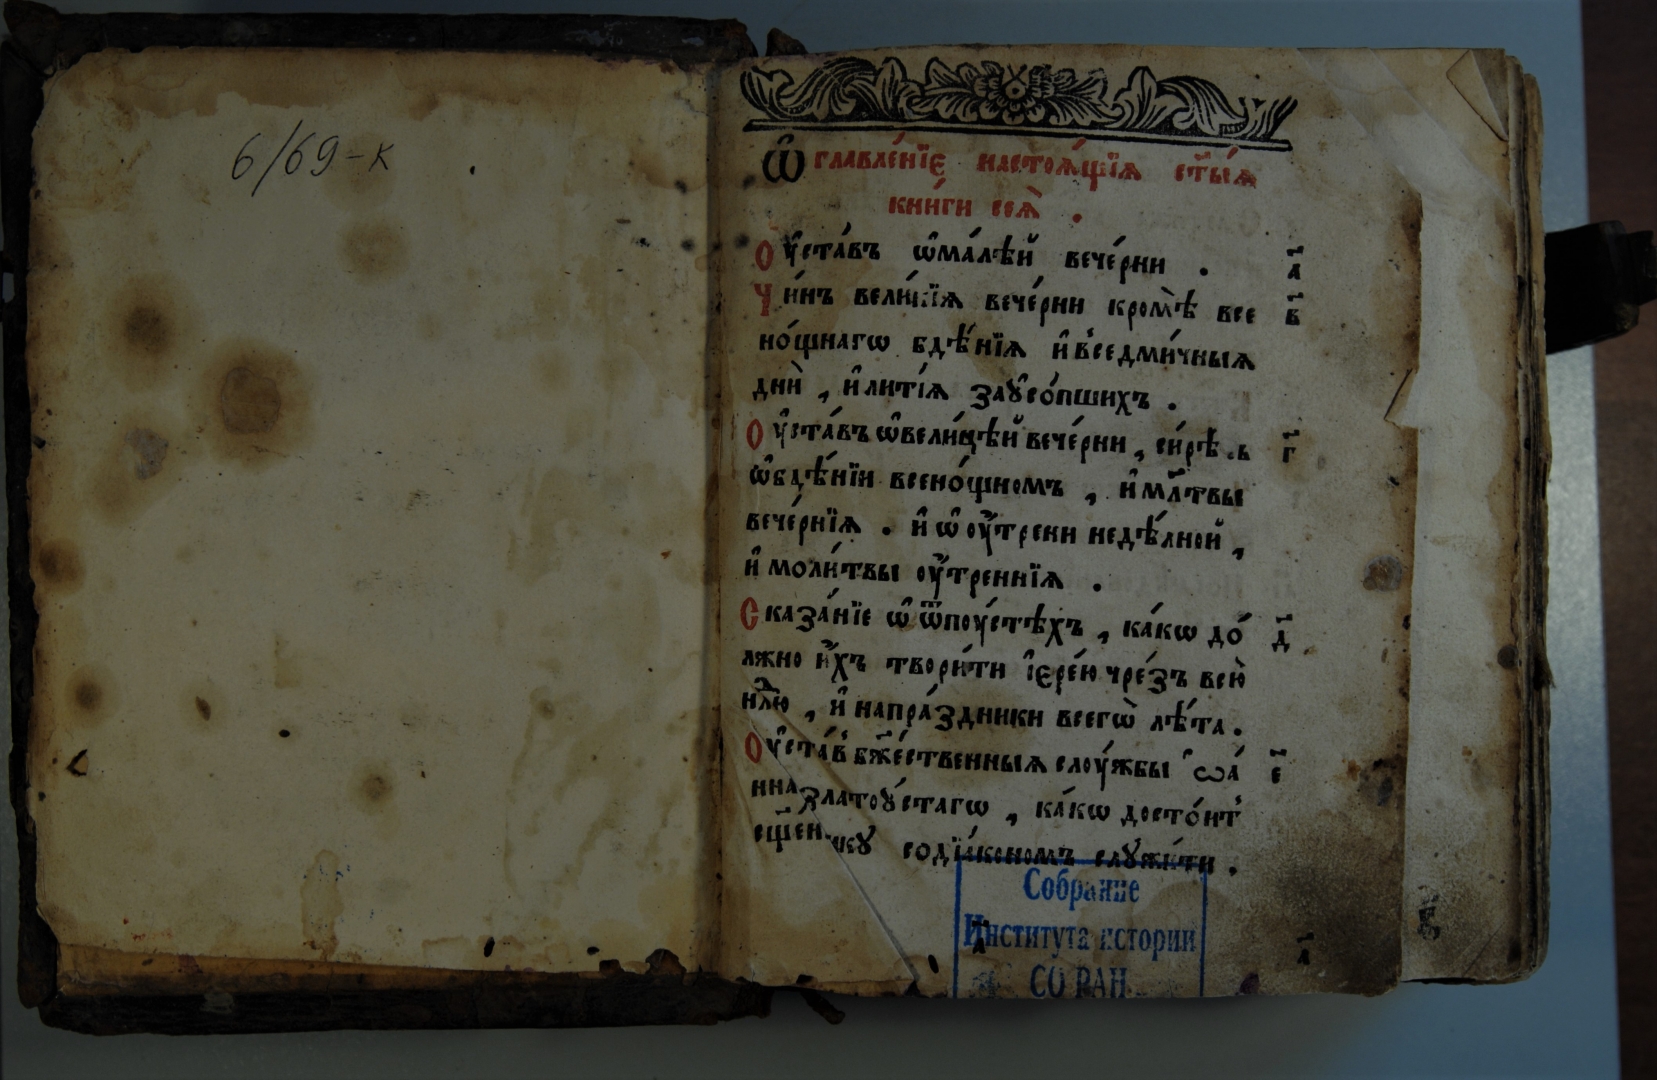 6/69-к
Ѡ҆главле́нїе настоѧ́щїѧ ст҃ы́ѧ
кни́ги сеѧ̀ .
Оу҆ста́въ ѡ҆ма́лѣй вече́рни . а҃
Чи́нъ вели́кїѧ вече́рни кромѣ̀ все в҃
но́щнагѡ бдѣ́нїѧ и҆ в̾седми́чныѧ
днѝ , и҆ литі́ѧ заꙋ҆со́пшихъ .
Оу҆ста́въ ѡ҆вели́цѣй вече́рни , си́рѣчь г҃
ѡ҆бдѣ́нїи всено́щномъ , и҆ мл҃твы
вече́рнїѧ . и҆ ѡ҆ оу҆́трени недѣ́лной ,
и҆ моли́твы оу҆́треннїѧ .
Сказа́нїе ѡ҆ ѿпоу́стѣхъ , ка́кѡ до́ д҃
лжно и҆́хъ твори́ти і҆ере́ю чре́зъ всю̀
нл҃ю , и҆ напра́здники всегѡ̀ лѣ́та .
Оу҆ста́в̾ бж҃е́ственныѧ слоу́жбы і҆ѡа́ е҃
нна златоꙋ́стагѡ , ка́кѡ досто́ит̾
сщ҃еннику содїа́кономъ слꙋжи́ти .
Собрание
Института истории
СО РАН
а҃